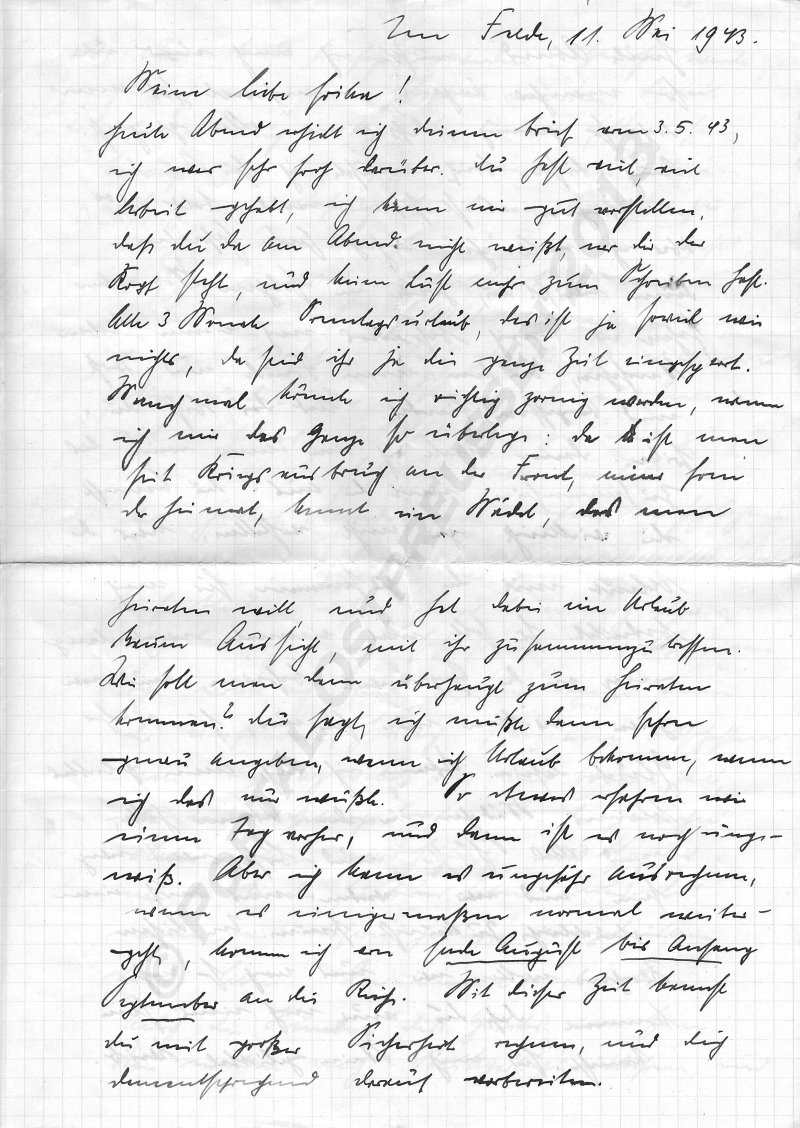 Im Felde, 11. Mai 1943.
Meine liebe Erika!
Heute Abend erhielt ich deinen Brief vom 3.5.43,
ich war sehr froh darüber. Du hast viel, viel
Arbeit gehabt, ich kann mir gut vorstellen,
daß du da am Abend nicht weißt, wo dir der
Kopf steht, und keine Lust mehr zum Schreiben hast.
Alle 3 Wochen Sonntagsurlaub, das ist ja soviel wie
nichts, da seid ihr ja die ganze Zeit eingesperrt.
Manchmal könnte ich richtig zornig werden, wenn
ich mir das Ganze so überlege: da ist man
seit Kriegsausbruch an der Front, fern
der Heimat, kennt ein Mädel, das man
heiraten will, und hat dabei im Urlaub
kaum Aussicht, mit ihr zusammenzutreffen.
Wie soll man denn überhaupt zum Heiraten
kommen? Du sagst, ich müßte dann schon
genau angeben, wann ich Urlaub bekomme, wenn
ich das nur wüßte. So etwas erfahren wir
einen Tag vorher, und dann ist es noch unge-
wiß. Aber ich kann es ungefähr ausrechnen,
wenn es einigermaßen normal weiter-
geht, komme ich von Ende August bis Anfang
September an die Reihe. Mit dieser Zeit kannst
du mit großer Sicherheit rechnen, und dich
dementsprechend darauf vorbereiten.